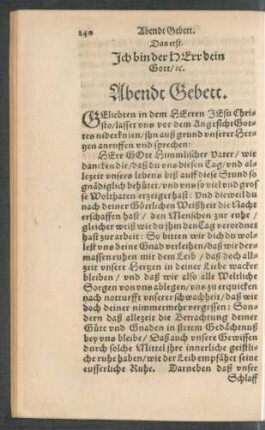 240 Abendt Gebett.
Dan erst.
Ich bin der HErr dein
Gott/ ꝛc.
Abendt Gebett.
GEliebten in dem HErren JEsu Chris
sto/ lasset vns vor dem Angesicht Got=
tes niderknien/ jhn auß grund vnserer Her=
tzen anruffen vnd sprechen:
HErr GOtt Himmlischer Vater/ wir
dancken dir/ daß du vns diesen Tag/ vnd al=
lezeit vnsers lebens biß auff diese Stund so
gnädiglich behütet/ vnd vns so viel vnd gros
se Wolthaten erzeiget hast: Vnd dieweil du
nach deiner Göttlichen Weißheit die Nacht
erschaffen hast / den Menschen zur ruhe /
gleicher weiß wie du jhm den Tag verord=
net hast zur arbeit: So bitten wir dich du wol=
lest vns deine Gnad verleihen/ daß wir der=
massen ruhen mit dem Leib / daß doch all=
zeit vnsere Hertzen in deiner Liebe wacker
bleiben / vnd daß wir also alle Weltliche
Sorgen von vns ablegen/ vns zu erquicken
nach notturfft vnserer schwachheit/ daß wir
doch deiner nimmermehr vergessen: Son=
dern daß allezeit die Betrachtung deiner
Güte vnd Gnaden in stetem Gedächtnuß
bey vns bleibe/ Daß auch vnsere Gewissen
durch solche Mittel jhre innerliche geistli=
che ruhe haben/ wie der Leib empfähet seine
eusserliche Ruhe. Darneben daß vnser
Schlaff